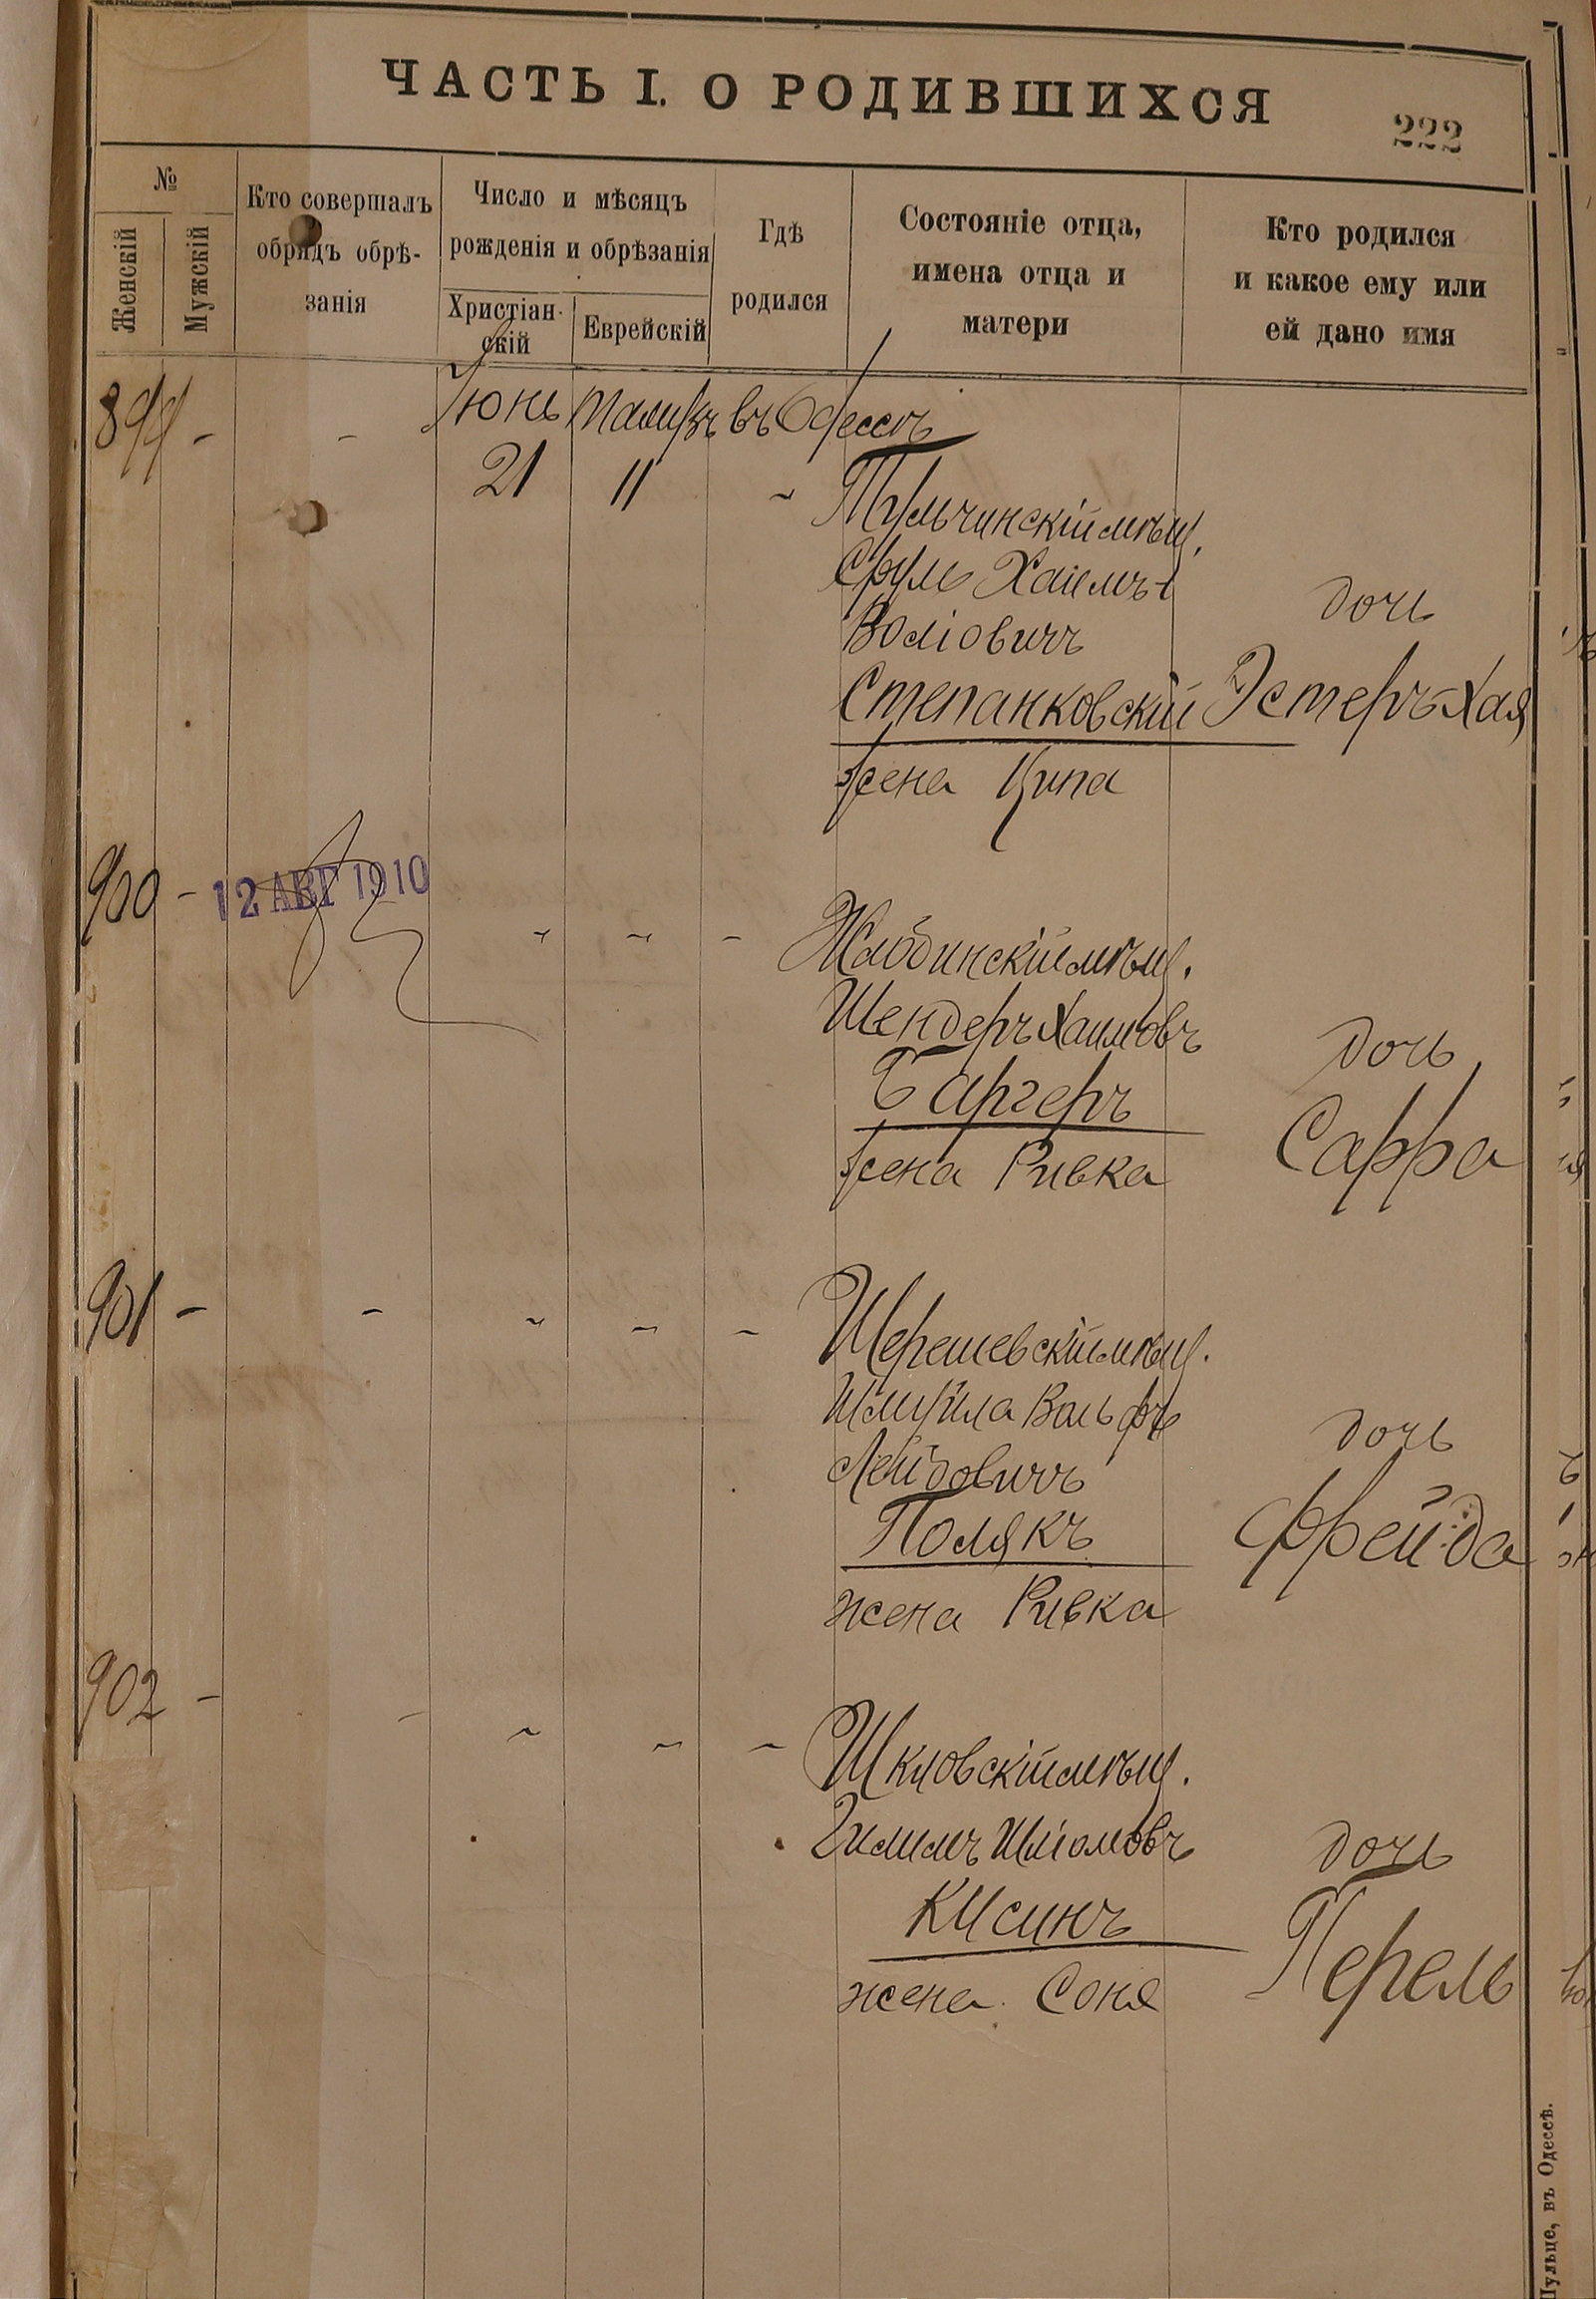 ЧАСТЬ I. О РОДИВШИХСЯ
222
№
Женскій
Мужскій
Кто совершалъ
обрядъ обрѣ-
занія
Число и мѣсяцъ
рожденія и обрѣзанія
Христіан-
скій
Еврейскій
Гдѣ
родился
Состояніе отца,
имена отца и
матери
Кто родился
и какое ему или
ей дано имя
899 - - Іюнь Тамузъ въ Одессѣ
21 11 "
Тульчинскій мѣщ.
Сруль Хаимъ
Воліовичъ
Степанковскій
жена Ципа
дочь
Эстеръ-Хая
900 - 12 АВГ 1910 " " "
Жлобинскій мѣщ.
Шендеръ Хаимовъ
Баргеръ
жена Ривка
дочь
Сарра
901 - - " " "
Шерешевскій мѣщ.
Шмуйла Вольфъ
Лейбовичъ
Полякъ
жена Ривка
дочь
Фрейда
902 - - " " "
Шкловскій мѣщ.
Зилимъ Шліомовъ
Кисинъ
жена Соня
дочь
Перель
Шульце, въ Одессѣ.